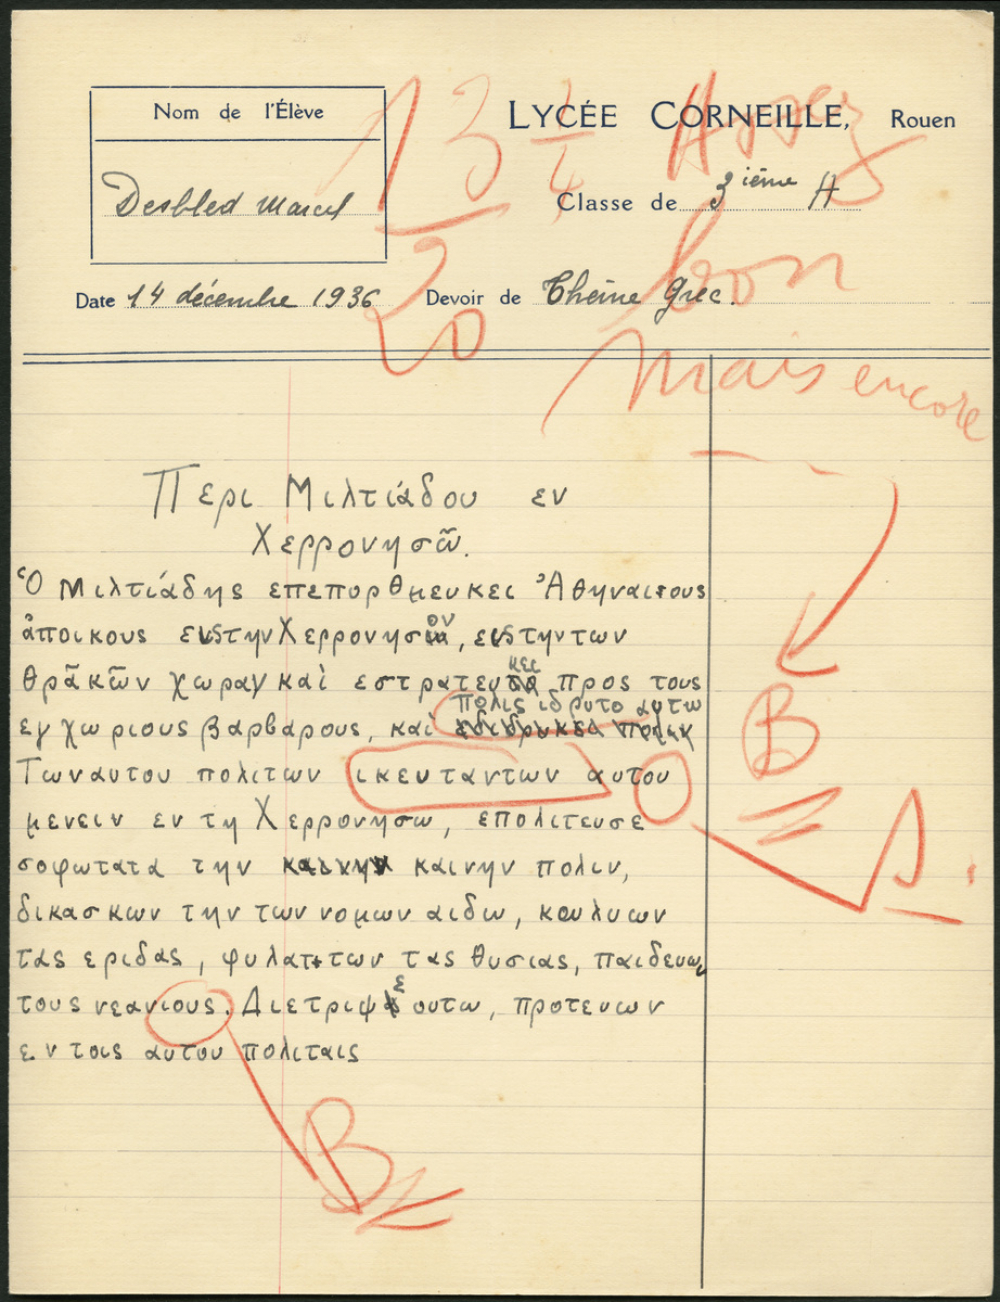 Nom de l'Élève
LYCÉE CORNEILLE, Rouen
13 1/4 Assez
Desbled Marcel
Classe de 3ième A
20 bon
Date 14 décembre 1936 Devoir de Thème Grec.
mais encore
Περι Μιλτιάδου εν
Χερρονησῶ.
Ὁ Μιλτιάδης επεπορθμευκει Ἀθηναιους
ἀποικους εις την Χερρονησον, εις την των
θρᾶκῶν χωραν καὶ εστρατευκει προς τους
πολις ιδρυτο αυτω
εγχωριους βαρβαρους, καὶ
Των αυτου πολιτων ικευταντων αυτου
μενειν εν τη Χερρονησω, επολιτευσε
σοφωτατα την καινην πολιν,
δικασκων την των νομων αιδω, κωλυων
τας εριδας, φυλαττων τας θυσιας, παιδευων
τους νεανιους. Διετριψε ουτω, προτευων
εν τοις αυτου πολιταις
B
S.
B